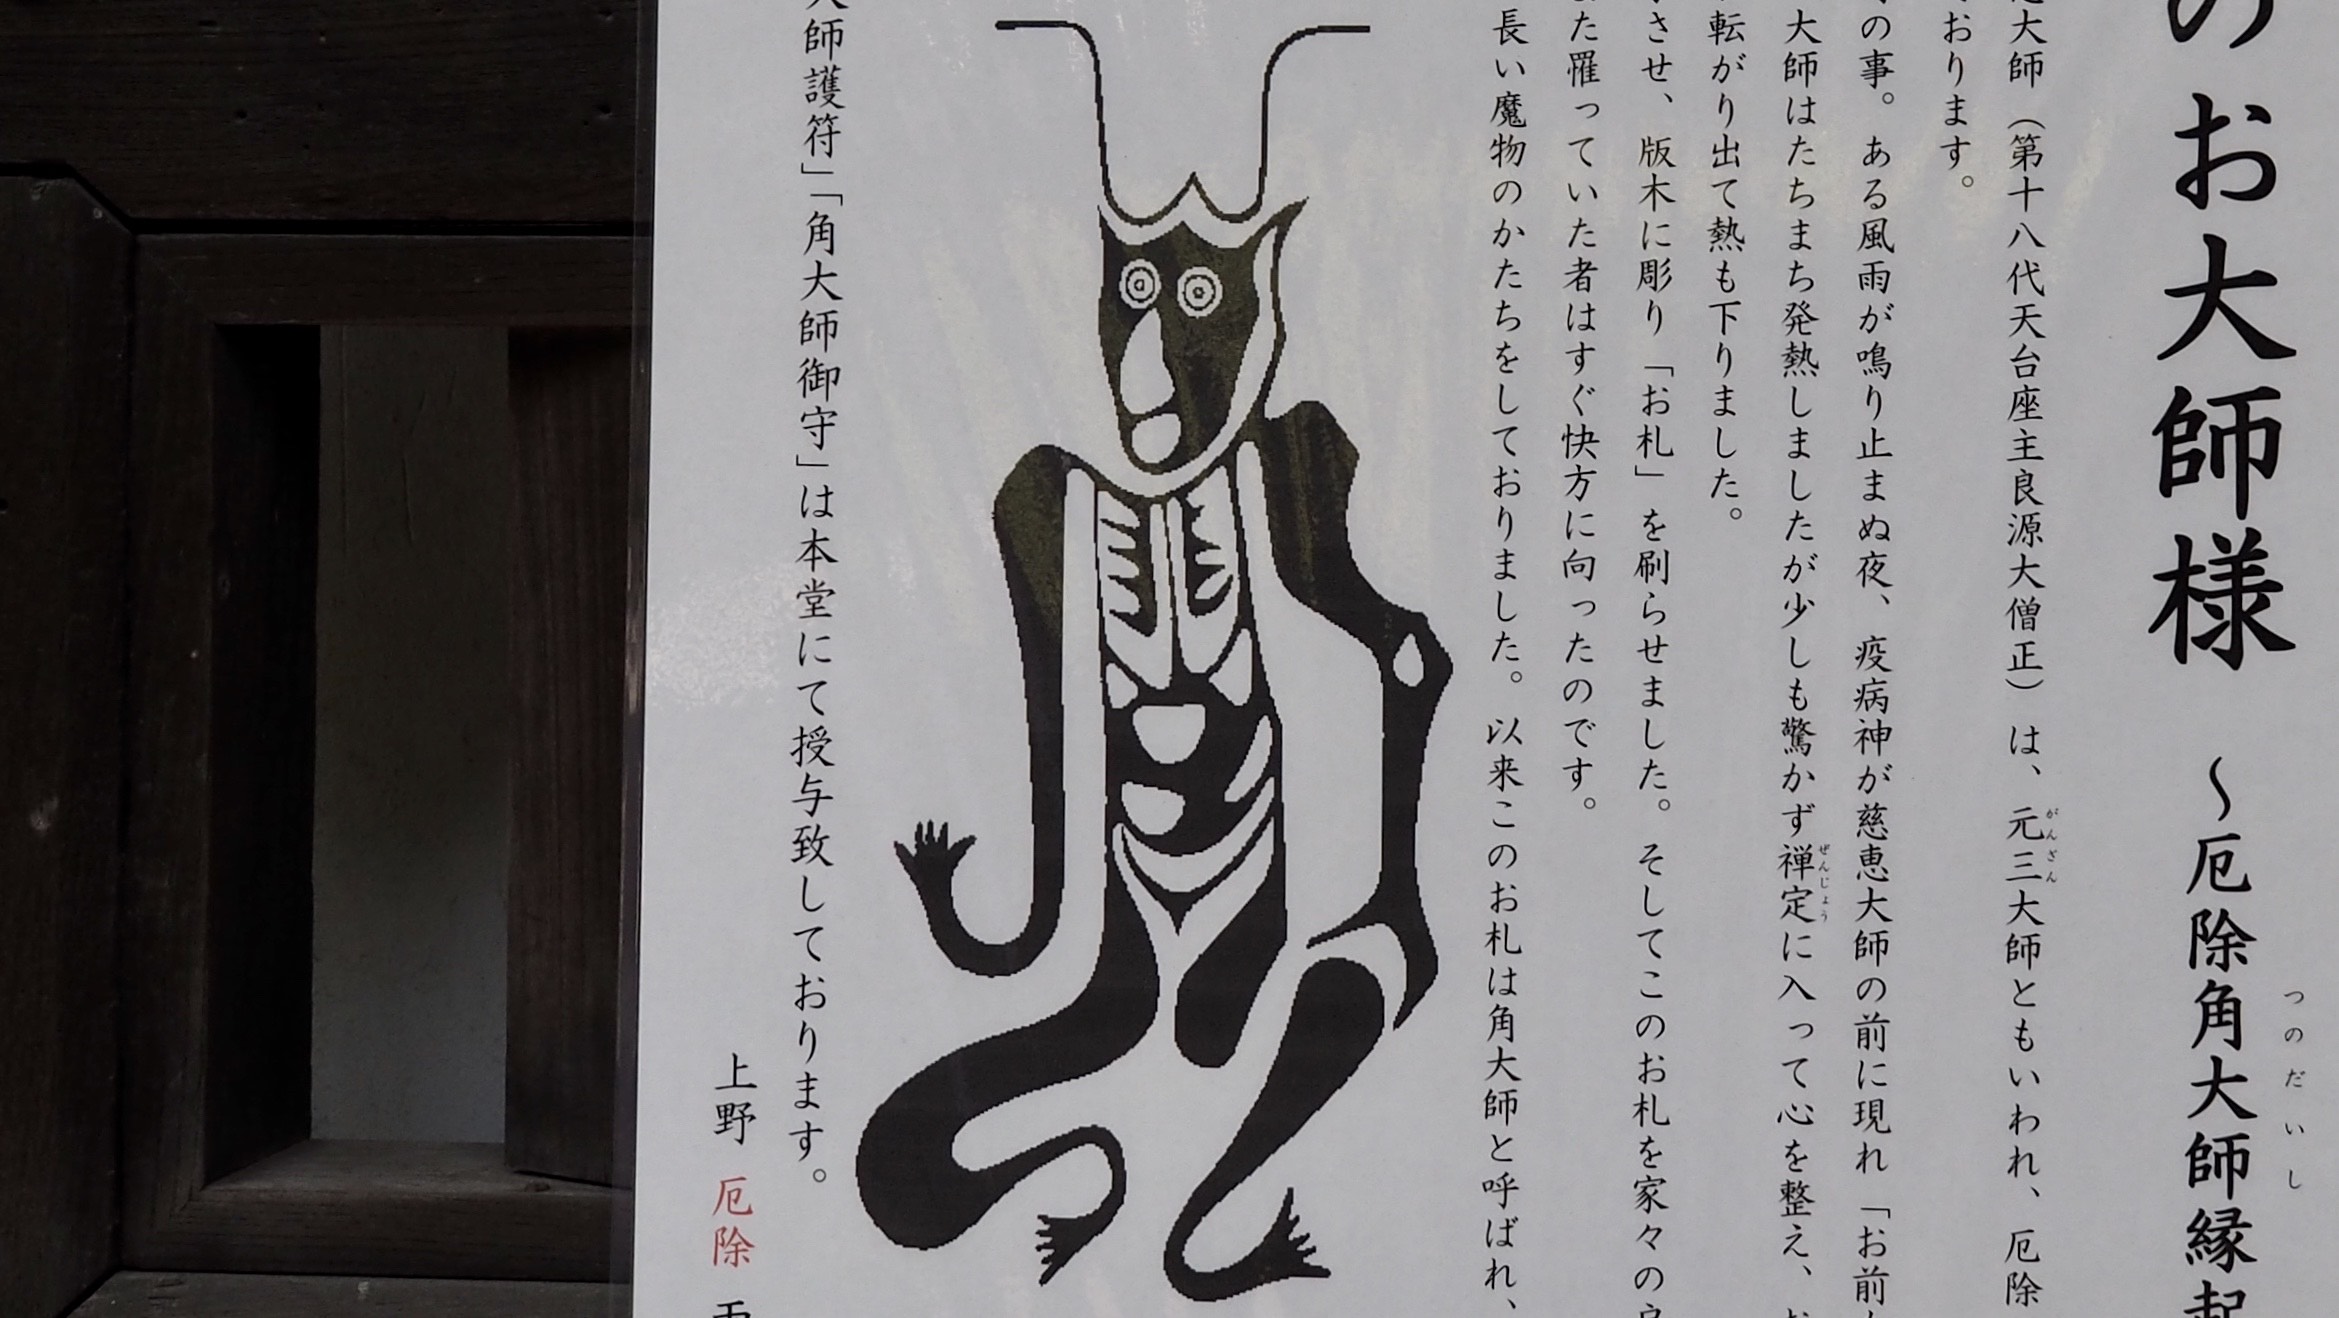 のお大師様 ～厄除角大師縁起
つのだいし
大師（第十八代天台座主良源大僧正）は、元三大師ともいわれ、厄除
がんざん
おります。
の事。ある風雨が鳴り止まぬ夜、疫病神が慈恵大師の前に現れ「お前
大師はたちまち発熱しましたが少しも驚かず禅定に入って心を整え、
ぜんじょう
転がり出て熱も下りました。
させ、版木に彫り「お札」を刷らせました。そしてこのお札を家々の
た罹っていた者はすぐ快方に向ったのです。
長い魔物のかたちをしておりました。以来このお札は角大師と呼ばれ、
大師護符」「角大師御守」は本堂にて授与致しております。
上野 厄除